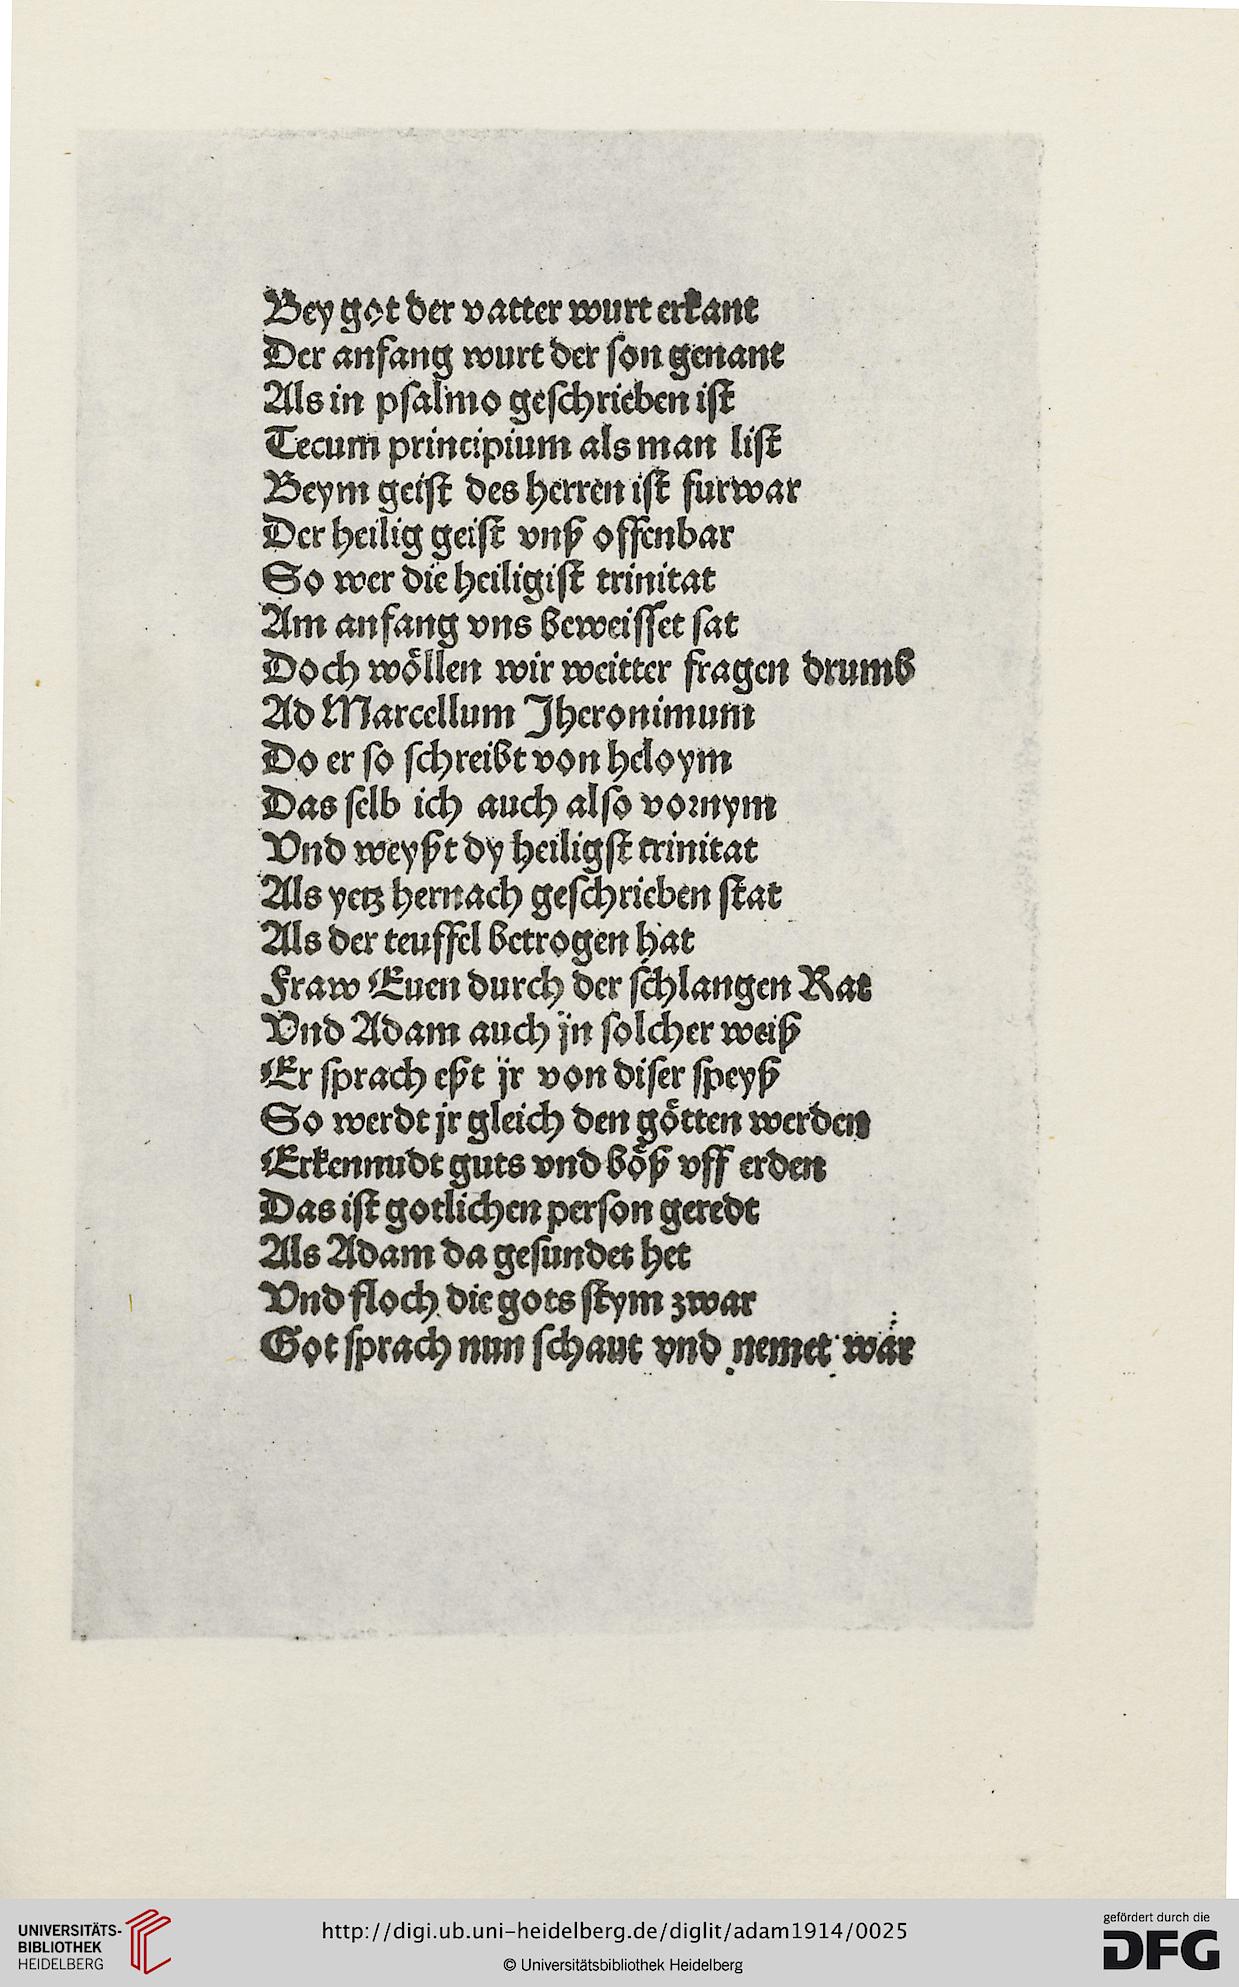 Bey got der vatter wurt erkant
Der anfang wurt der ſon genant
Als in pſalmo geſchrieben iſt
Tecum principium als man liſt
Beym geiſt des herren iſt furwar
Der heilig geiſt vnß offenbar
So wer die heiligiſt trinitat
Am anfang vns beweiſſet ſat
Doch wöllen wir weitter fragen drumb
Ad Marcellum Jheronimum
Do er ſo ſchreibt von heloym
Das ſelb ich auch alſo vornym
Vnd weyßt dy heiligſt trinitat
Als yetz hernach geſchrieben ſtat
Als der teuffel betrogen hat
Fraw Euen durch der ſchlangen Rat
Vnd Adam auch jn ſolcher weiß
Er ſprach eßt jr von diſer ſpeyß
So werdt jr gleich den götten werden
Erkennudt guts vnd böß vff erden
Das iſt gotlichen perſon geredt
Als Adam da geſundet het
Vnd floch die gots ſtym zwar
Got ſprach nun ſchaut vnd nemet war
UNIVERSITÄTS-
BIBLIOTHEK
HEIDELBERG
http://digi.ub.uni-heidelberg.de/diglit/adam1914/0025
© Universitätsbibliothek Heidelberg
gefördert durch die
DFG